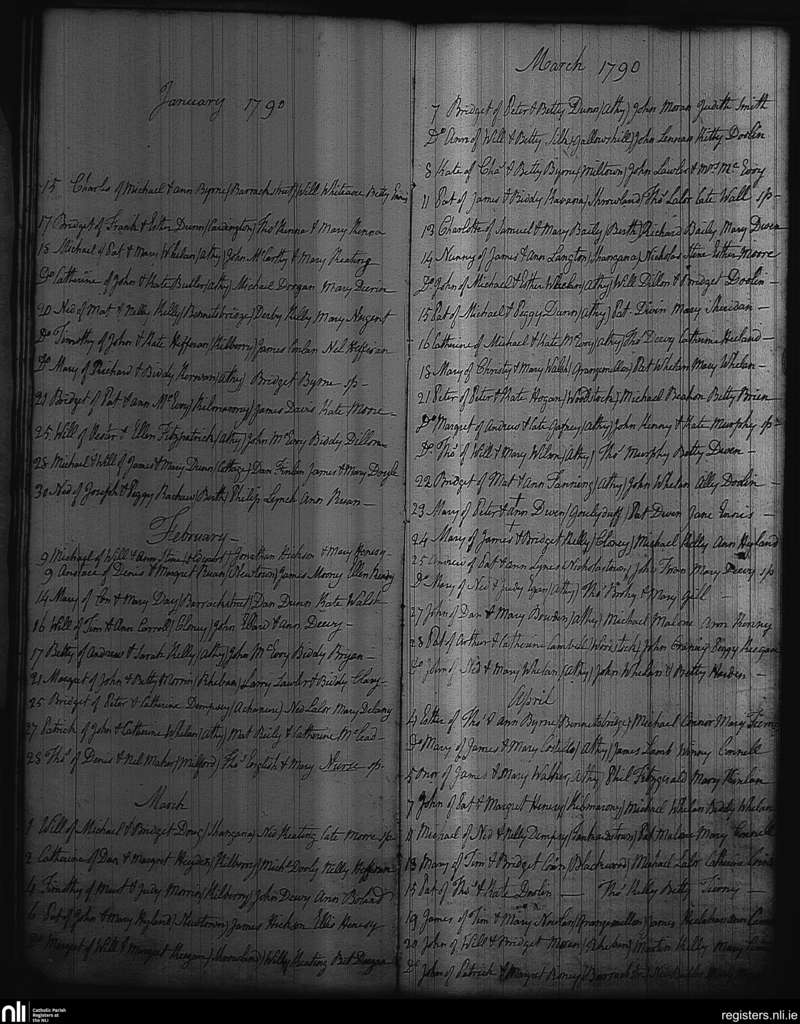 January 1790
15 Charls of Michael & ann Byrne (Barrack street) Will Whiteacre Betty
17 Bridget of Frank & Esther Dunn (Cardington) Thos Kenna & Mary Kenna
18 Michael of Pat & Mary Whelan (Athy) John McCarthy & Mary Keating
Do Catherine of John & Kate Butler (athy) Michael Dorgan Mary
20 Ned of Mat & Nelly Kelly (Bennetsbridge) Darby Kelly Mary Nugent
Do Timothy of John & Kate Heffernan (Kilberry) James Conlan Nel Heffernan
Do Mary of Richard & Biddy Kerwan (athy) Bridget Byrne sp-
21 Bridget of Pat & ann McEvoy (Kilmorony) James Davis Kate Moore -
25 Will of & Ellen Fitzpatrick (Athy) John McEvoy Biddy Dillon
28 Michael & Will of James & Mary Dunn (Cottage) Dan Finlin James & Mary Doyle
30 Ned of Joseph & Peggy (Bert) Philip Lynch Ann Ruan -
February -
9 Michael of Will & Ann Jonathan Hickson & Mary Henesy -
9 Anstace of Denis & Margret Ruan (Newtown) James Mooney Ellen
14 Mary of Con & Mary Day (Barrackstreet) Dan Dunn Kate Walsh
16 Will of Tim & Ann Carroll (Cloney) John & ann Deevy -
17 Betty of Andrew & Sarah Kelly (Athy) John McEvoy Biddy Bryan -
21 Margret of John & Betty Morrin (Rheban) Larry Lawler & Biddy Clary -
25 Bridget of Peter & Catherine Dempsey (Achanure) Ned Lalor Mary Delany
27 Patrick of John & Catherine Whelan (Athy) Mat Reily & Catherine
28 Thos of Denis & Nel Maher (Milford) Thos English & Mary Nurse sp-
March
1 Will of Michael & Bridget (Shangana) Ned Keating Cate Moore sp
2 Catherine of Dan & Margret Heyden (Kilberry) Michl Dooly Nelly Heffernan
4 Timothy of & Judy Morrin (Kilberry) John Deevy Ann Boland
6 Pat of John & Mary Hyland (Newtown) James Hickson Ellis Henesy
Do Margret of Will & Margret Keegan (Shrowland) Willy Keating Bet
March 1790
7 Bridget of Peter & Betty Dunn (Athy) John Moran Judith Smith
Do Ann of Will & Betty (Gallowshill) John Lennan Kitty Doolin
8 Kate of Chas & Betty Byrne (Miltown) John Lawler & Mrs McEvoy
11 Pat of James & Biddy Kavana (Shrowland) Thos Lalor Cate Wall sp-
13 Charlotte of Samuel & Mary Baily (Bert) Richard Baily Mary Dwen
14 Nanny of James & Ann Langton (Shangana) Nicholas Esther Moore
Do John of Michael & Esther Whelan (Athy) Will Dillon & Bridget Doolin -
15 Pat of Michael & Peggy Dunn (Athy) Pat Divin Mary Sheridan -
16 Catherine of Michael & Kate McEvoy (Athy) Thos Deevy Catherine -
18 Mary of Christy & Mary Walsh (Grangemellon) Pat Whelan Mary Whelan -
21 Peter of Peter & Kate Hogan (Woodstock) Michael Beahon Betty Brien
Do Margret of Andrew & Cate Gafney (Athy) John Henny & Kate Murphy sp
Do Thos of Will & Mary Wilson (Athy) Thos Murphy Betty Dwen -
22 Bridget of Mat & Ann Fanning (Athy) John Whelan Ally Doolin -
23 Mary of Peter & ann Dwen (Gouleyduff) Pat Dwen Jane Ennis -
24 Mary of James & Bridget Kelly (Cloney) Michael Kelly Ann Hyland
25 Andrew of Pat & ann Lynes Nicholastown John Mary Deevy sp
Do Mary of Ned & Judy Egan (Athy) Thos & Mary Gill -
27 John of Dan & Mary Bowden (Athy) Michael Malone Ann Henny
28 Pat of Arthur & Catherine Cambell (Woodstock) John Peggy Keegan
Do John of Ned & Mary Whelan (Athy) John Whelan & Betty Harden -
April
4 Esther of Thos & ann Byrne (Bennetsbridge) Michael Connor Mary
Do Mary of James & Mary Costello (Athy) James Lamb Winny Connell
5 of James & Mary Walker (Athy) Phil Fitzgerald Mary
7 John of Pat & Margret Henesy (Kilmorony) Michael Whelan Biddy Whelan
11 Michael of Ned & Nelly Dempsey Pat Malone Mary Connell
13 Mary of Tim & Bridget (Blackwood) Michael Lalor Catherine
15 Pat of Thos & Kate Doolin — Thos Kelly Betty Tierney —
19 James of Tim & Mary Nowlan (Grangemellon) James ann
20 John of Will & Bridget Moran (Rheban) Martin Kelly Mary
Do John of Patrick & Margret Roney (Barrack str) Ned Butler Mary
nli
Catholic Parish
Registers at
the NLI
registers.nli.ie